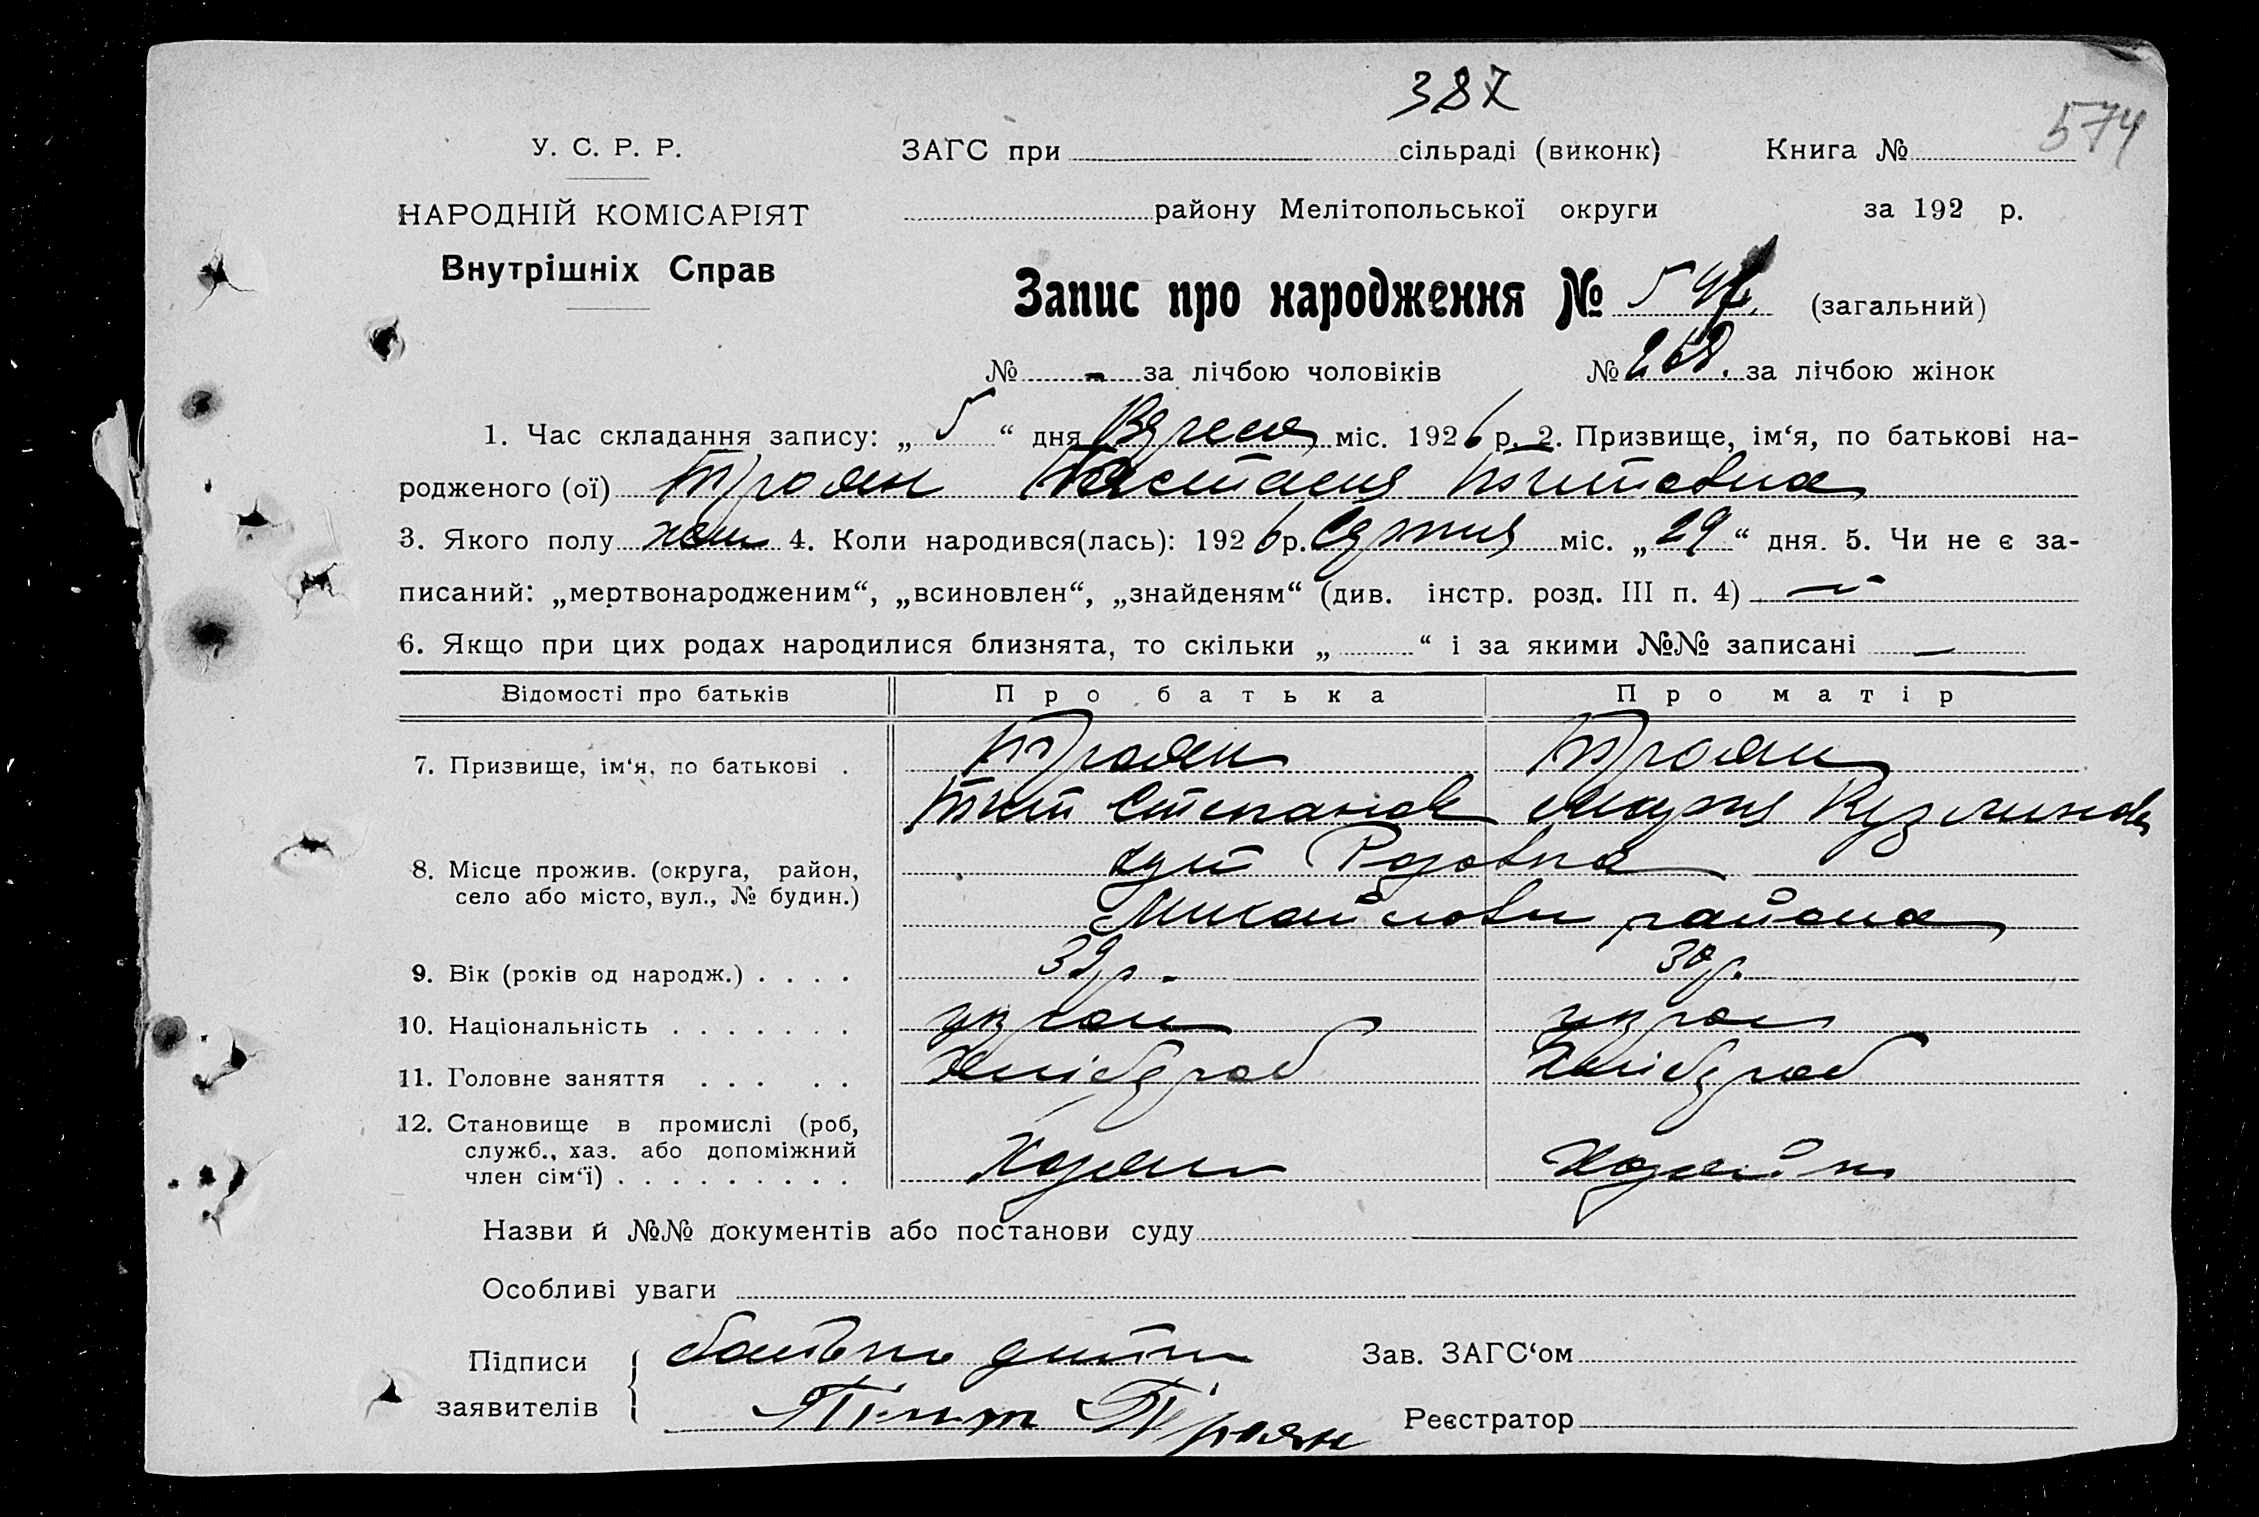 387
574
У. С. Р. Р.
ЗАГС при сільраді (виконк) Книга №
НАРОДНІЙ КОМІСАРІЯТ
району Мелітопольської округи за 192 р.
Внутрішніх Справ
Запис про народження № (загальний)
№ - за лічбою чоловіків № за лічбою жінок
1. Час складання запису: „ 5 “ дня міс. 1926 р. 2. Призвище, ім‘я, по батькові на-
родженого (ої) Троян Настасия Титовна
3. Якого полу жен 4. Коли народився(лась): 1926 р. міс. „ 29 “ дня. 5. Чи не є за-
писаний: „мертвонародженим“, „всиновлен“, „знайденям“ (див. інстр. розд. III п. 4) —
6. Якщо при цих родах народилися близнята, то скільки „ “ і за якими №№ записані —
Відомості про батьків Про батька Про матір
7. Призвище, ім‘я, по батькові . Троян Троян
Тит Степанов Мария
8. Місце прожив. (округа, район, хут
село або місто, вул., № будин.) района
9. Вік (років од народж.) . . . . 39 р. 38 р.
10. Національність . . . . . . . украи украи
11. Головне заняття . . . . . Хлібороб Хлібороб
12. Становище в промислі (роб,
служб., хаз. або допоміжний
член сім‘ї) . . . . . . . . . Хозяин
Назви й №№ документів або постанови суду
Особливі уваги
Підписи батько дитини Зав. ЗАГС‘ом
заявителів Тит Троян Реєстратор